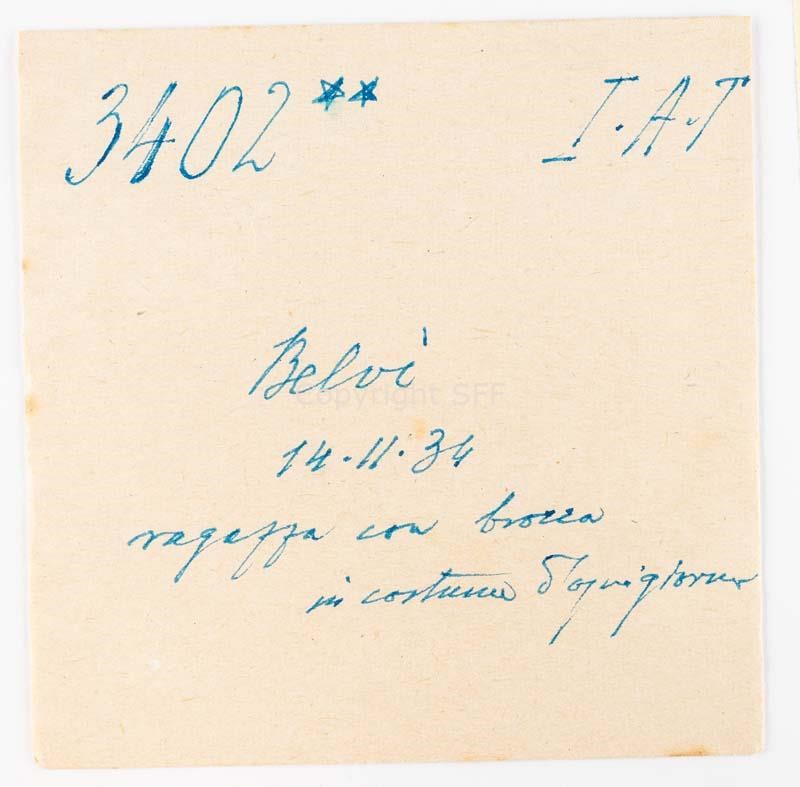 3402 ** I.A.T
Belvì
Copyright SFF
14.11.34
ragazza con brocca
in costume d'ognigiorno